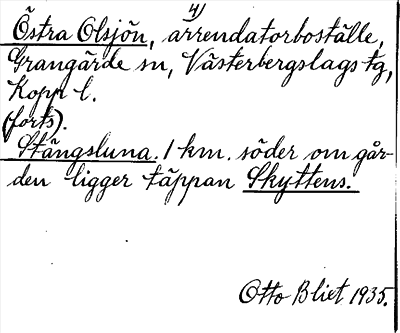 4)
Östra Olsjön, arrendatorboställe,
Grangärde sn, Västerbergslags tg,
Kopp l.
(forts).
Stängsluna. 1 km. söder om går-
den ligger täppan Skyttens.
Otto Blixt 1935.